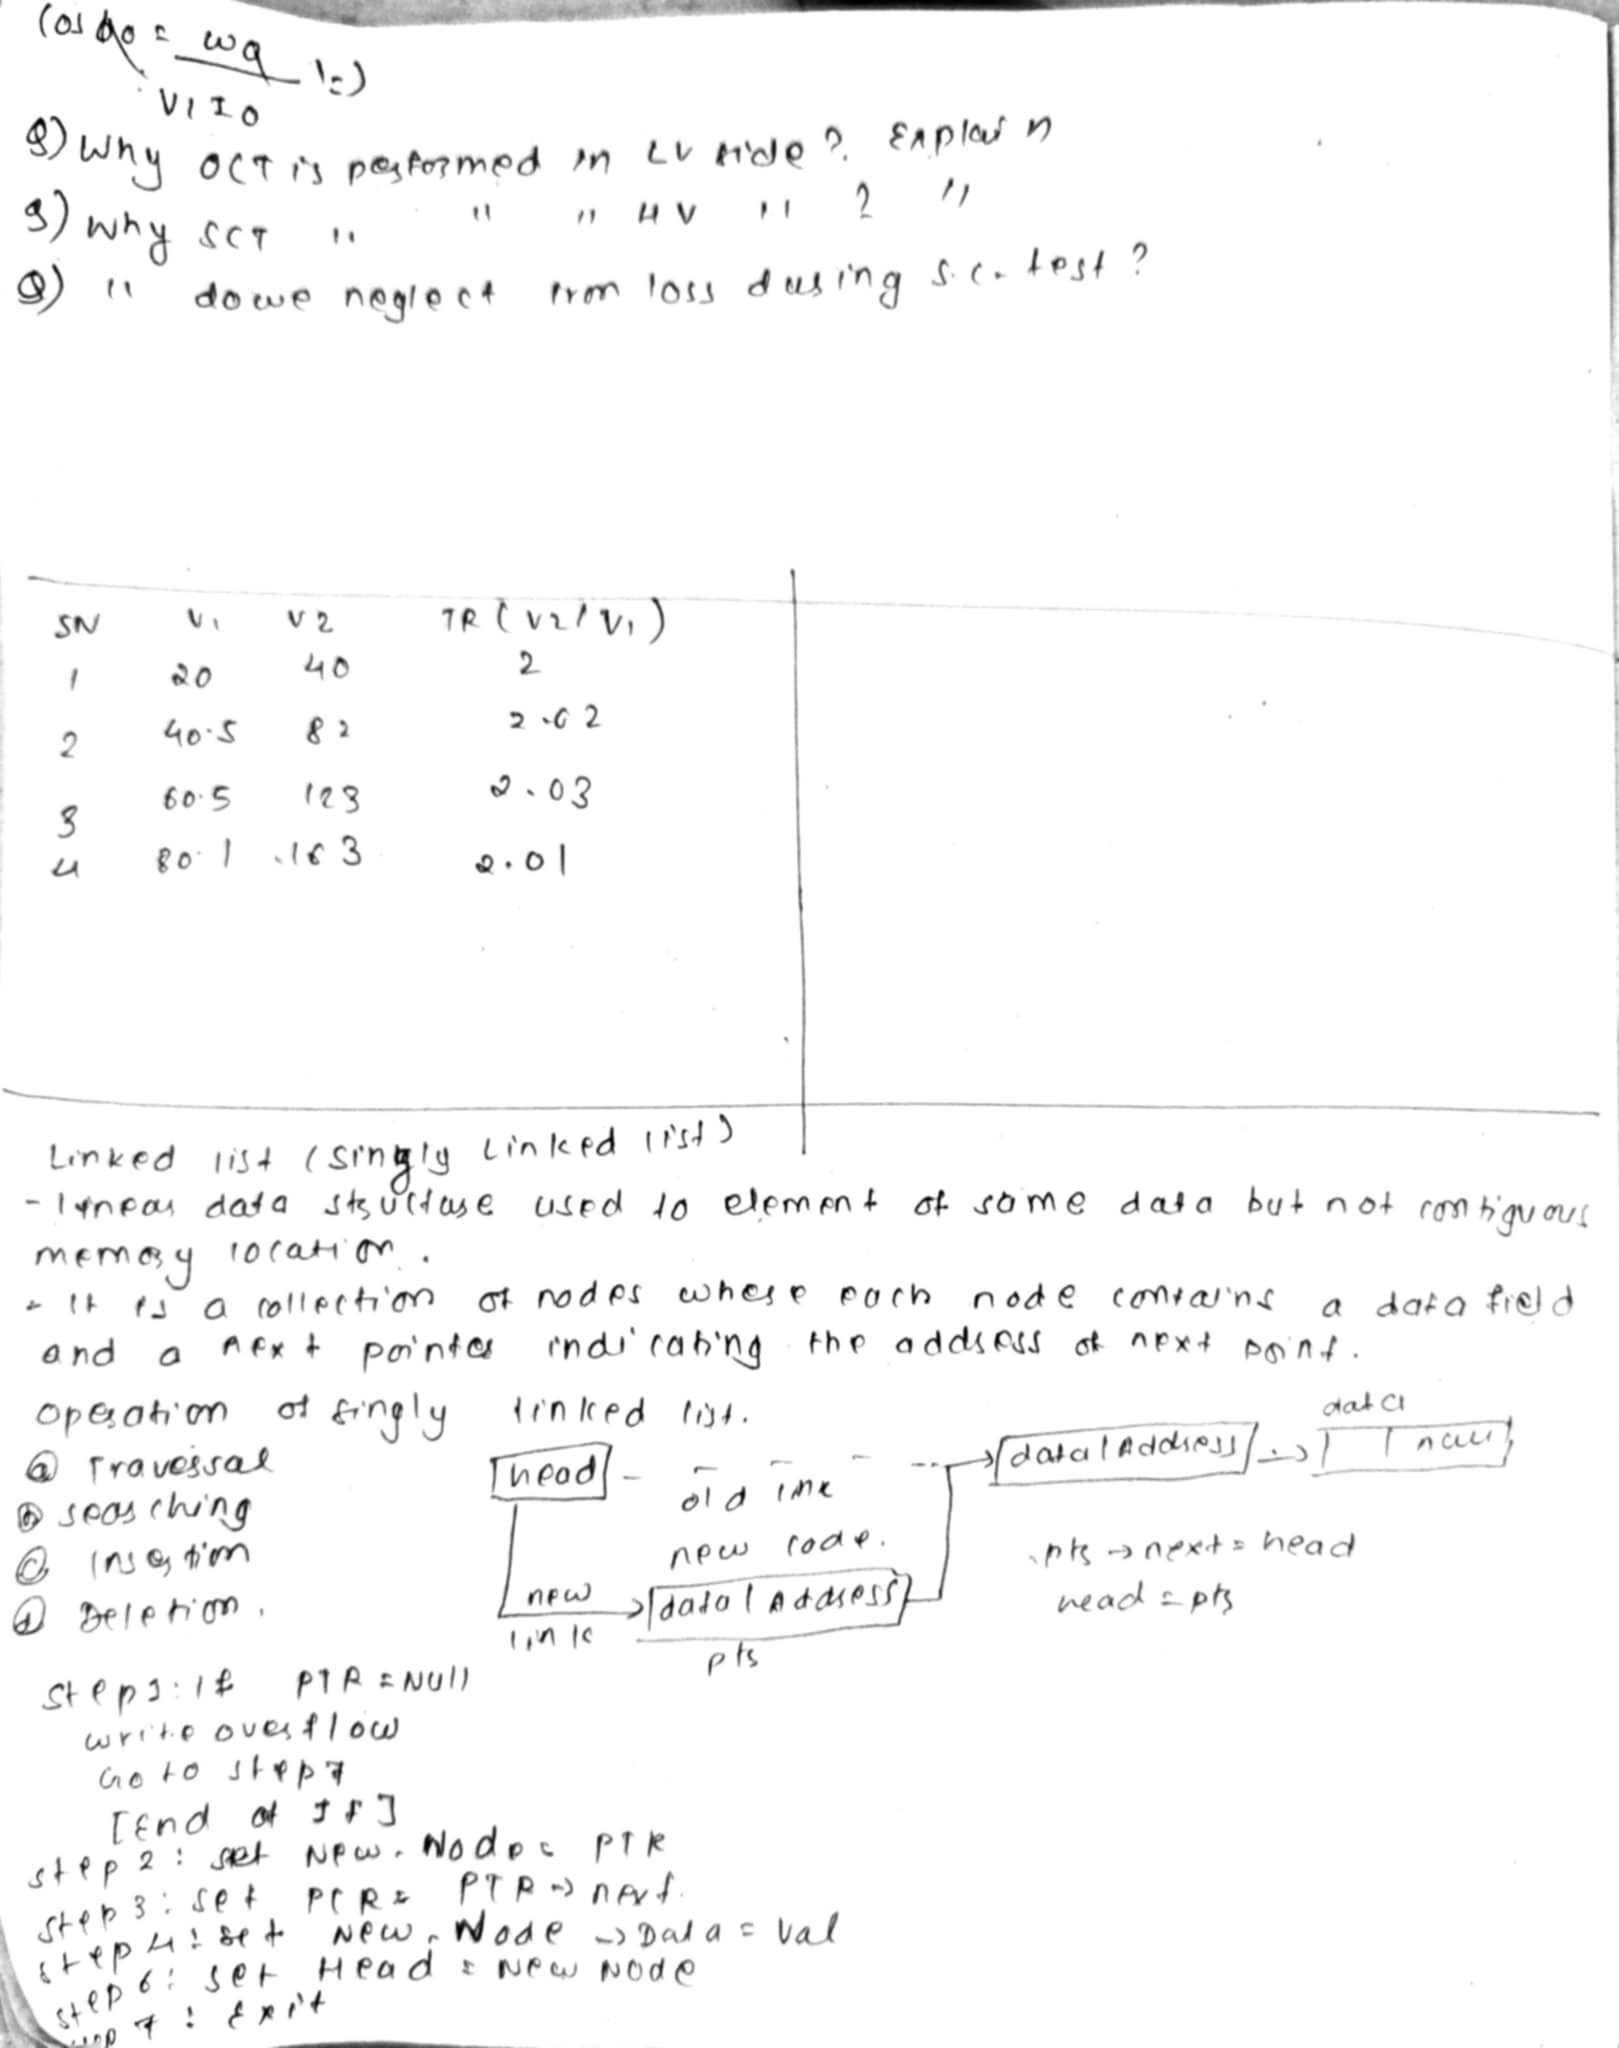 Cos ϕo = wq
V1 I0
Q) Why OCT is performed in LV side ? Explain
Q) Why SCT " " " HV " ? "
Q) " do we neglect iron loss during s.c. test ?
SN V1 V2 TR (V2/V1)
1 20 40 2
2 40.5 82 2.02
3 60.5 123 2.03
4 80.1 163 2.01
Linked list (singly Linked list)
- linear data structure used to element of same data but not contiguous
memory location.
- It is a collection of nodes where each node contains a data field
and a next pointer indicating the address of next point.
operation of singly linked list.
ⓐ Traversal
ⓑ searching
ⓒ Insertion
ⓓ Deletion.
head
old link
new code.
new
link
data | Address
ptr
data | Address
data
null
ptr → next = head
head = ptr
Step 1: If PTR = NULL
write overflow
Go to step 7
[End of If]
step 2 : set New. Node = PTR
step 3 : set PTR = PTR → next.
step 4 : set New. Node → Data = Val
step 6 : set Head = New Node
step 7 : Exit